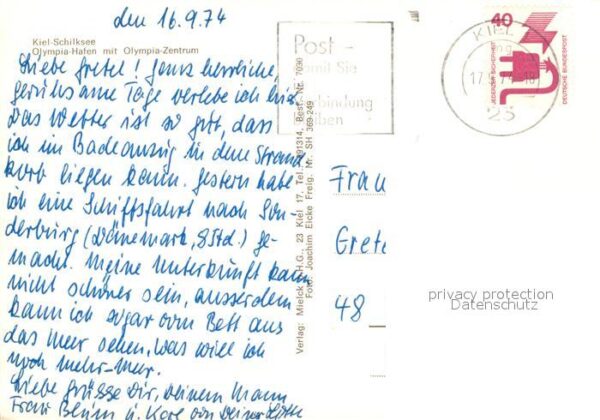 den 16.9.74
Kiel-Schilksee
Olympia-Hafen mit Olympia-Zentrum
Liebe Gretel! Ganz herrliche,
geruhsame Tage verlebe ich hier.
Das Wetter ist so gut, dass
ich im Badeanzug in dem Strand
korb liegen kann. Gestern habe
ich eine Schiffsfahrt nach Son-
derburg (Dänemark, 8 Std.) ge-
macht. Meine Unterkunft kann
nicht schöner sein, ausserdem
kann ich sogar vom Bett aus
das Meer sehen, was will ich
noch mehr-Meer.
Liebe Grüsse Dir, Deinem Mann
Frau Blum u. Karl von Deiner
Verlag: Mielck O.H.G., 23 Kiel 17, Tel. 391314, Best.-Nr. 7090
Foto: Joachim Eicke Freig. Nr. SH 369-249
Post -
damit Sie
bindung
ben
KIEL
17.9.74-18
23
40
JEDERZEIT SICHERHEIT
DEUTSCHE BUNDESPOST
Frau
Grete
48
privacy protection
Datenschutz